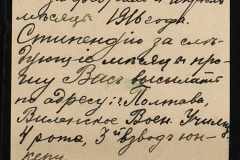 мѣсяцъ 1916 года.
Стипендію за слѣ-
дующіе мѣсяцы про-
шу Васъ высылать
по адресу: Полтава,
Виленское Воен. Училищ
4 рота, 3й взводъ юн-
керу